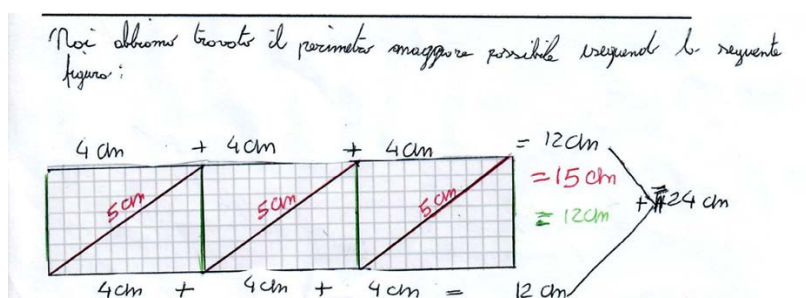 Noi abbiamo trovato il perimetro maggiore possibile eseguend la seguente
figura:
4 cm + 4 cm + 4 cm = 12 cm
5 cm 5 cm 5 cm = 15 cm
= 12 cm + 24 cm
4 cm + 4 cm + 4 cm = 12 cm